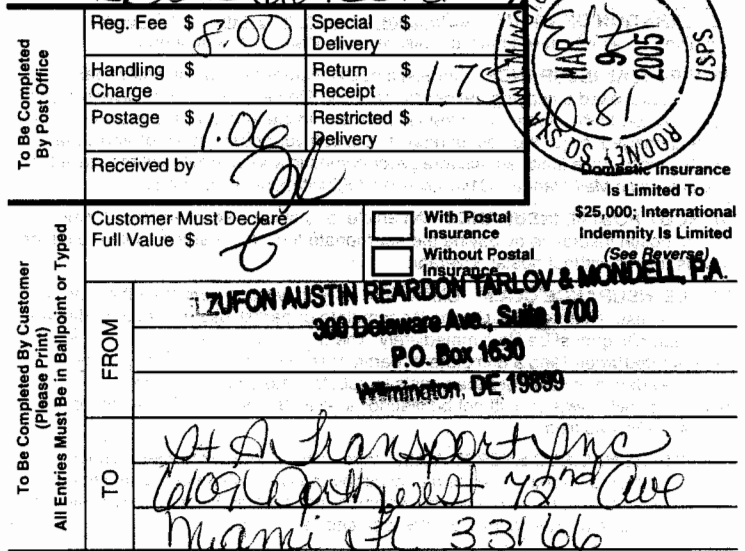 To Be Completed
By Post Office
Reg. Fee $ 8.00
Special Delivery $
Handling Charge $
Return Receipt $ 1.75
Postage $ 1.06
Restricted Delivery $
Received by
WILMINGTON
MAR 9 2005
RODNEY SQ STA
USPS
10.81
Domestic Insurance
Is Limited To
$25,000; International
Indemnity Is Limited
(See Reverse)
To Be Completed By Customer
(Please Print)
All Entries Must Be in Ballpoint or Typed
Customer Must Declare
Full Value $
With Postal
Insurance
Without Postal
Insurance
FROM
ZUFON AUSTIN REARDON TARLOV & MONDELL, P.A.
300 Delaware Ave., Suite 1700
P.O. Box 1630
Wilmington, DE 19899
TO
A Transport Inc
6109 Northwest 72nd Ave
Miami FL 33166